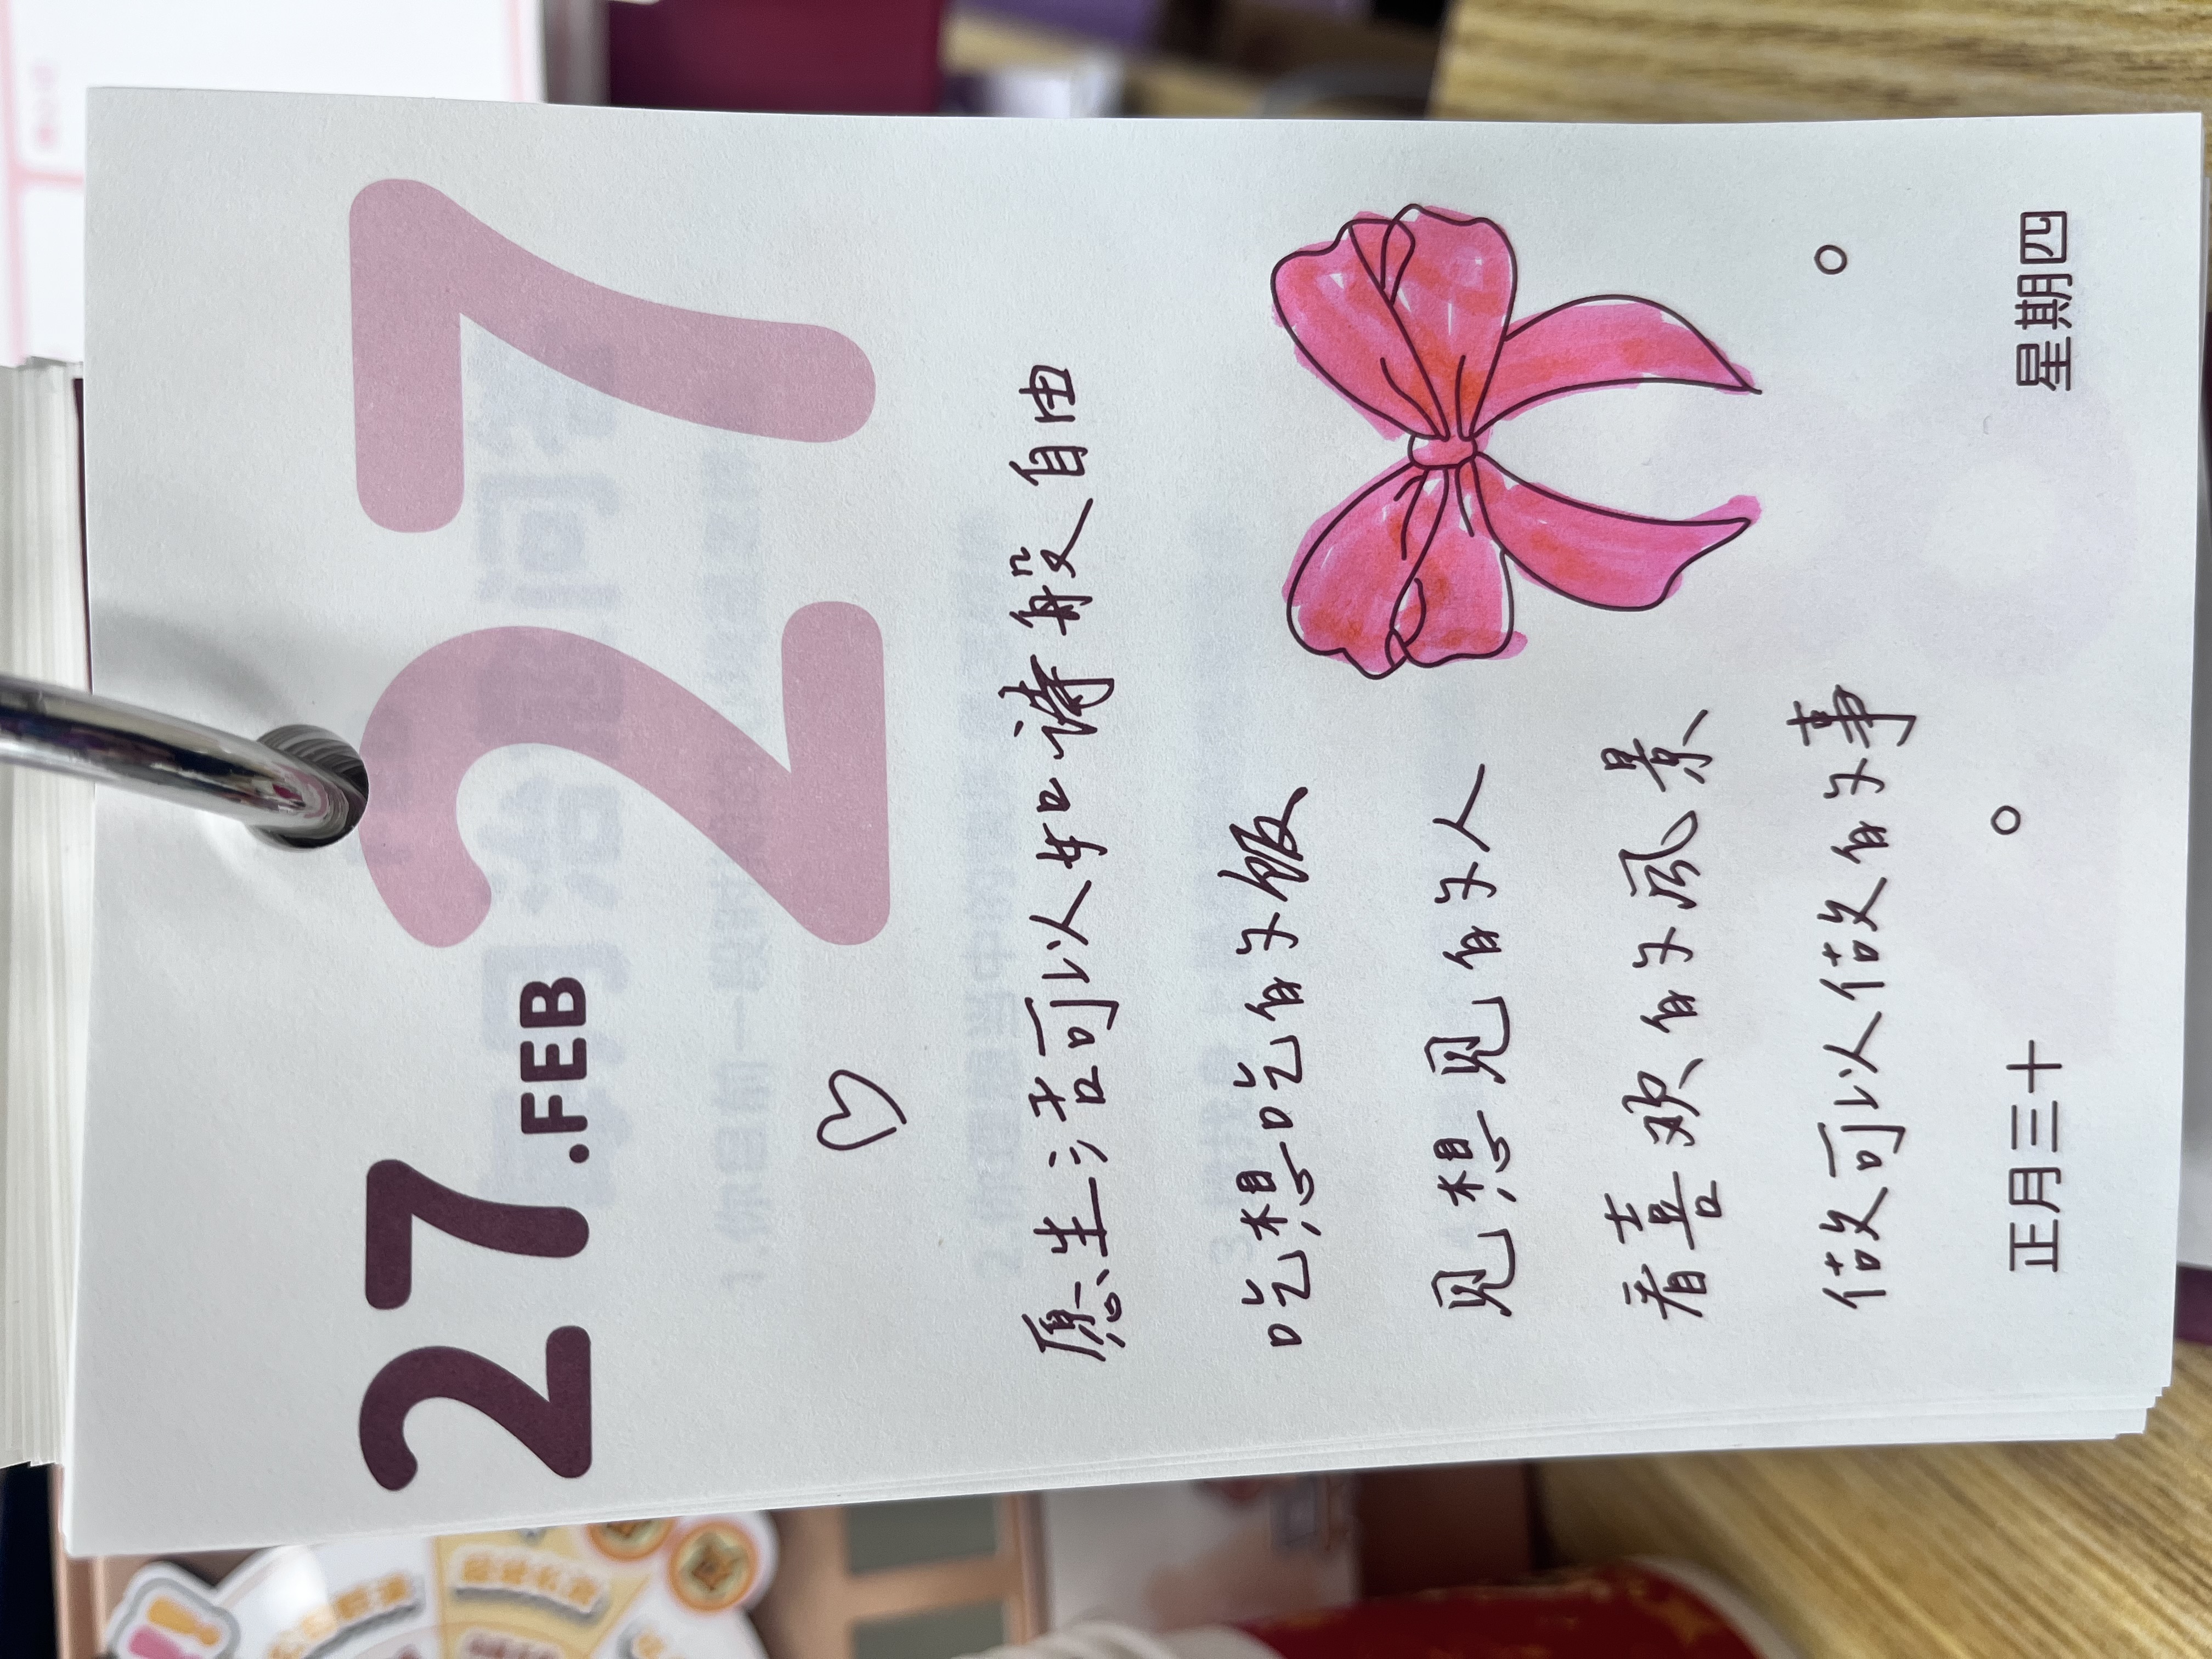 27
27.FEB
愿生活可以如诗般自由
吃想吃的饭
见想见的人
看喜欢的风景
做可以做的事
正月三十
星期四